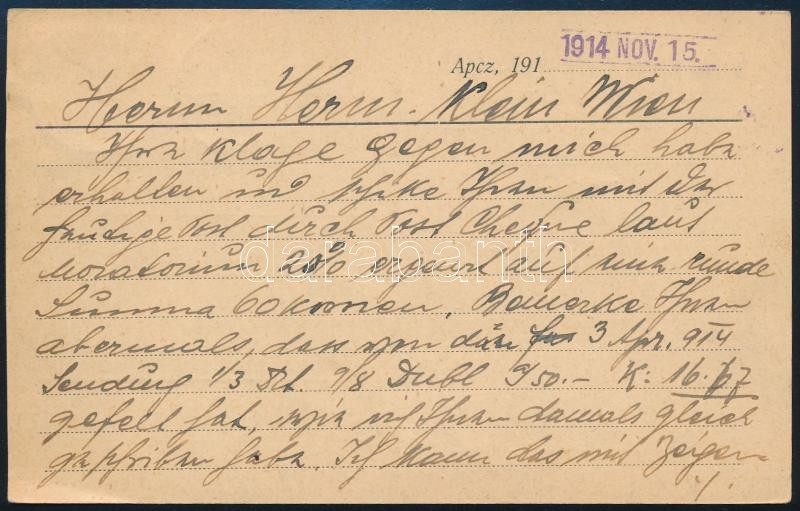 Apcz, 191
1914 NOV. 15.
Herrn Herm. Klein Wien
Ihre Klage gegen mich habe
erhalten und schike Ihnen mit der
heutige Post durch Post Cheque laut
Moratorium 20% auf eine runde
Summa 60 kronen, Bemerke Ihnen
abermals, dass von 3 Apr. 914
Sendung 1/3 Dt. 9/8 Dubl a 50.- K: 16.67
gefelt hat, wie ich Ihnen damals gleich
geschriben habe. Ich kann das mit Zeigen
./.
darabanth